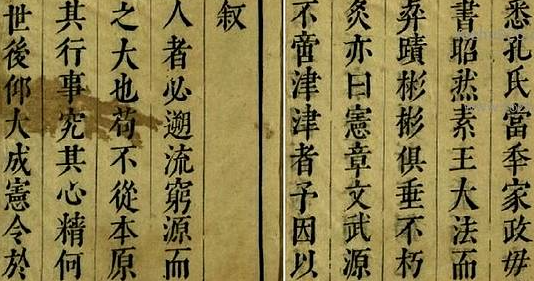 悉孔氏當秊家政毋
書昭然素王大法而
弈蹟彬彬俱垂不朽
炙亦曰憲章文武源
不啻津津者予因以
叙
人者必遡流窮源而
之大也苟不從本原
其行事究其心精何
世後仰大成憲令於